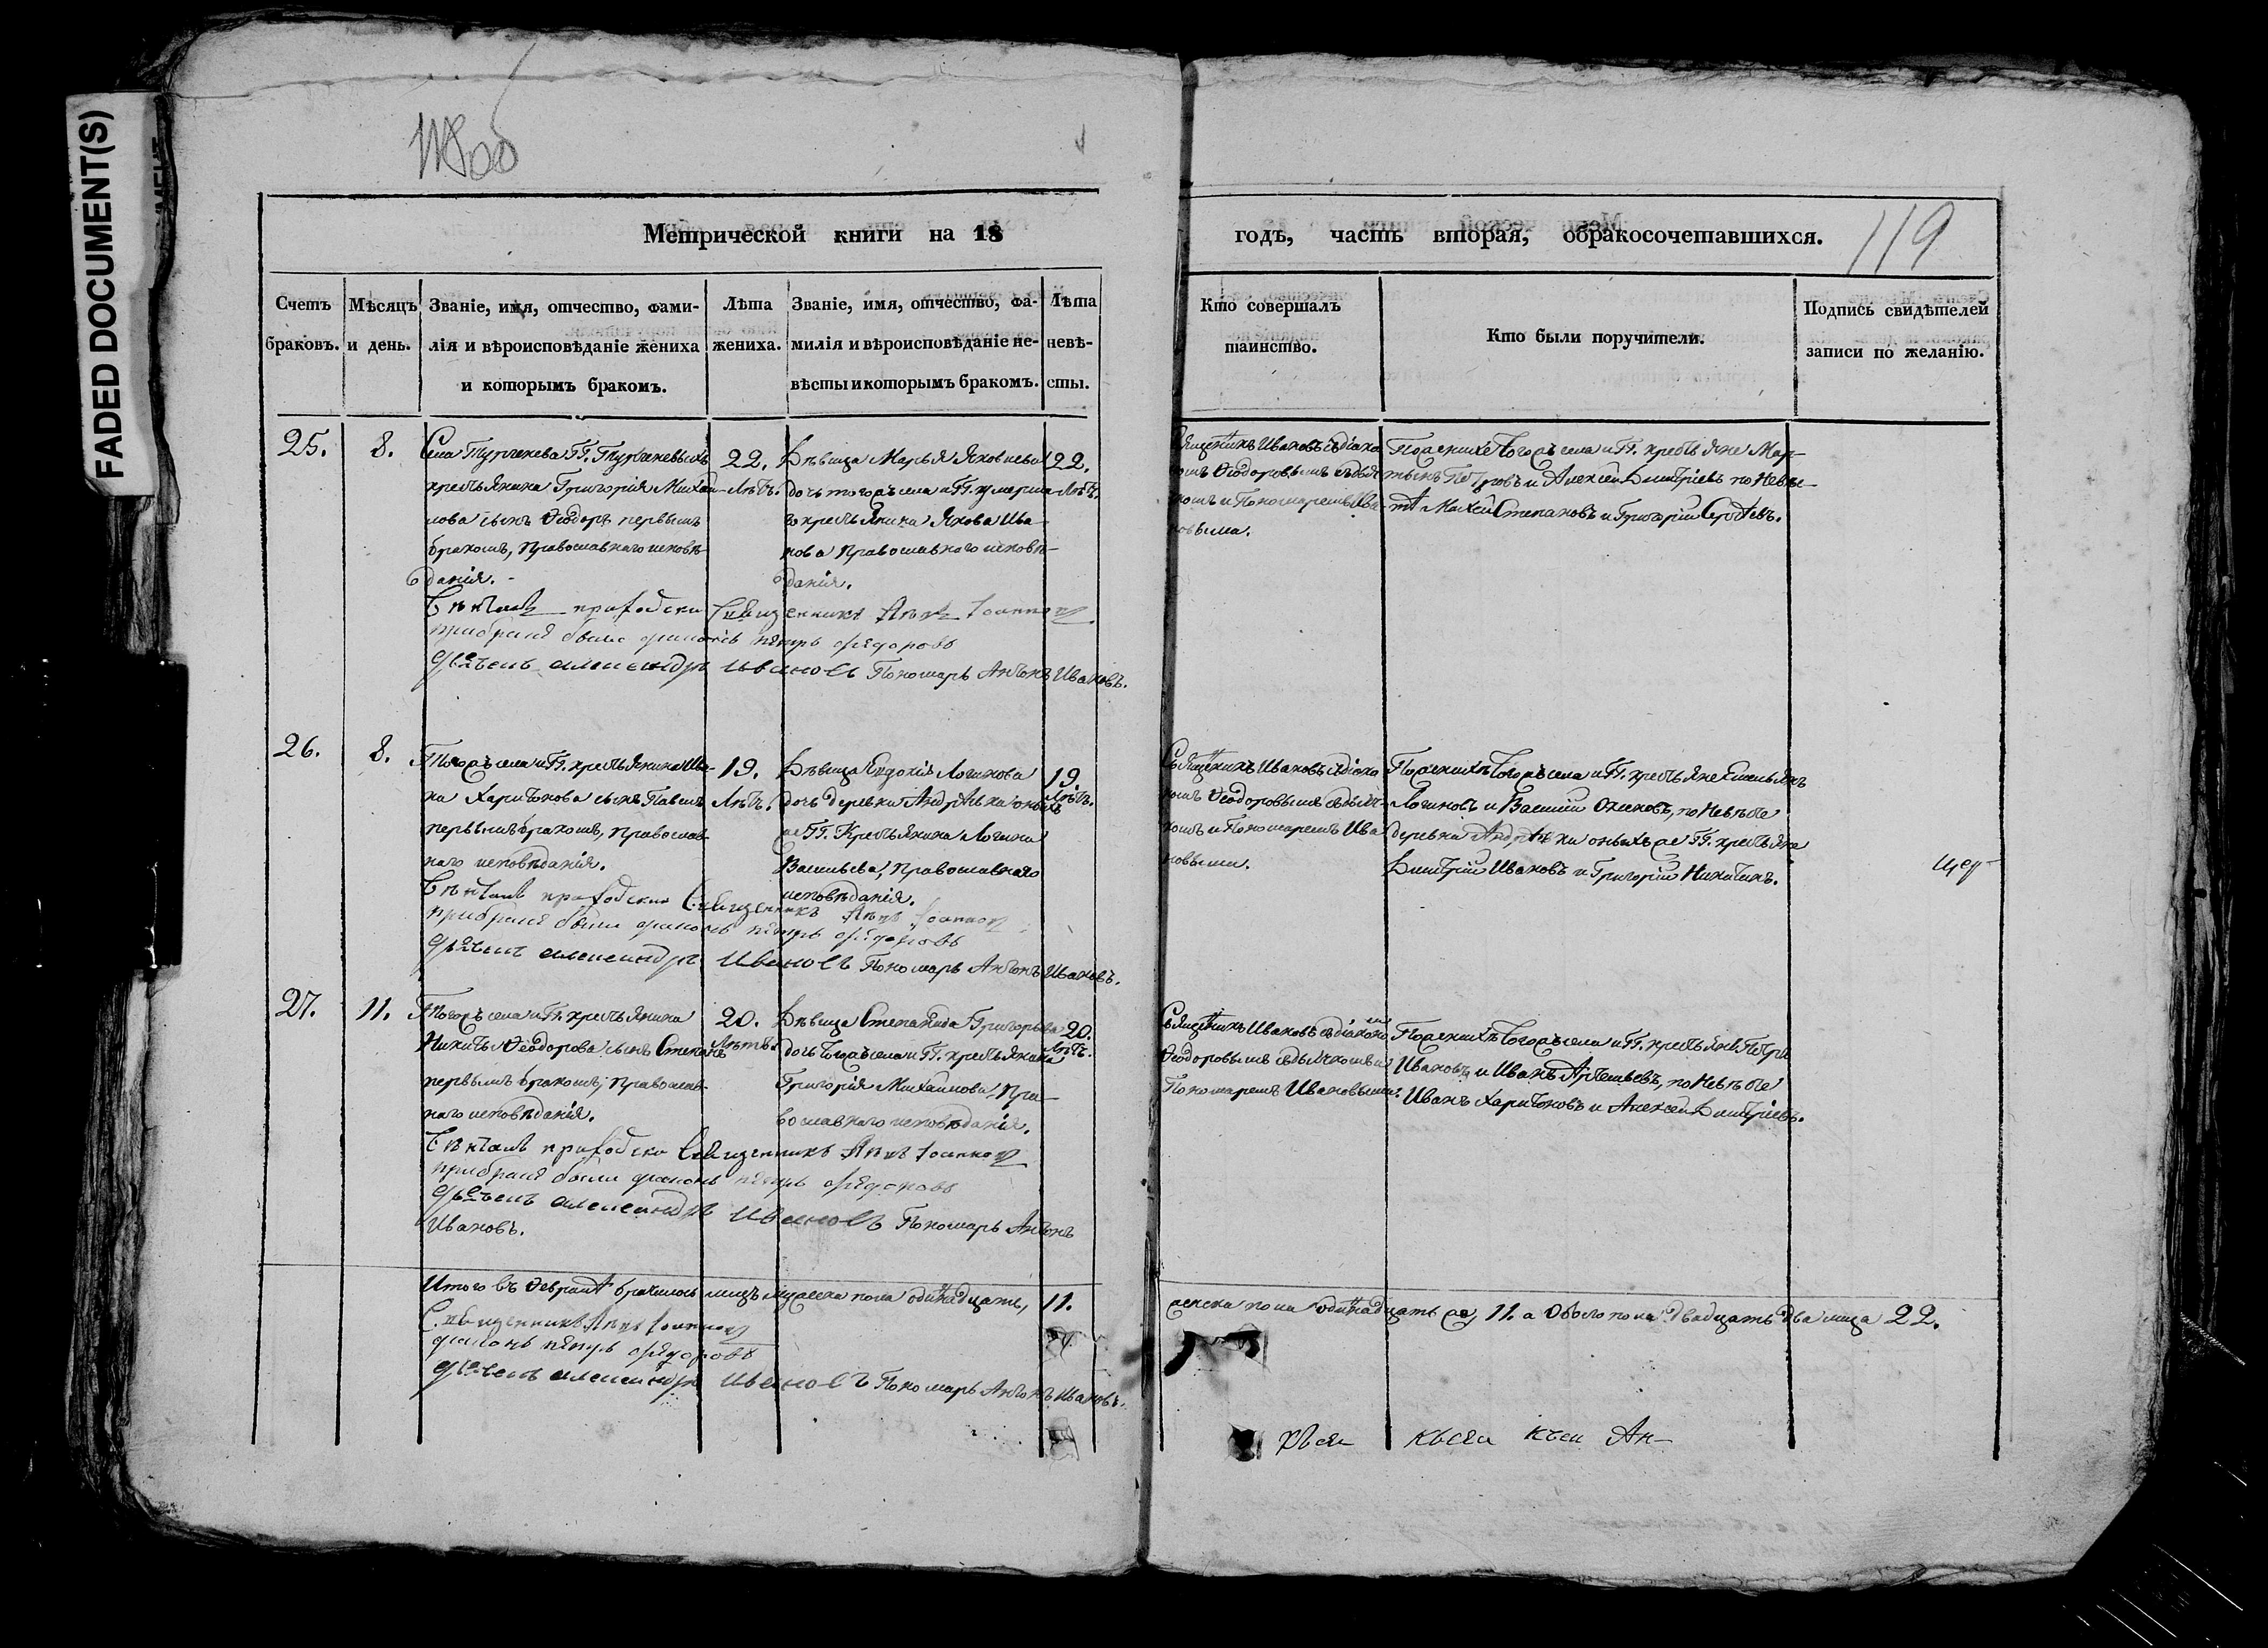 FADED DOCUMENT(S)
119
Метрической книги на 18
годъ, часть вторая, обракосочетавшихся.
Счетъ браковъ.
Мѣсяцъ и день.
Званіе, имя, отчество, фами-
лія и вѣроисповѣданіе жениха
и которымъ бракомъ.
Лѣта жениха.
Званіе, имя, отчество, фа-
милія и вѣроисповѣданіе не-
вѣсты и которымъ бракомъ.
Лѣта невѣ-
сты.
Кто совершалъ
таинство.
Кто были поручители.
Подпись свидѣтелей
записи по желанію.
25.
8.
Села Тургенева ГГ. Тургеневыхъ
крестьянина Григорія Михай-
лова сынъ Ѳеодоръ первымъ
бракомъ, православнаго исповѣ-
данія.
22.
Лѣтъ.
Дѣвица Марья Яковлева
дочь тогожъ села и ГГ. умерша-
го крестьянина Якова Ива-
нова православнаго исповѣ-
данія.
22.
Лѣтъ.
Священникъ Ивановъ съ діако-
номъ Ѳеодоровымъ съ дьяч-
комъ и Пономаремъ Ива-
новыма.
По женихѣ тогожъ села и ГГ. крестьяне Мар-
тынъ Петровъ и Алексей Димитріевъ по Невѣс-
тѣ Михей Степановъ и Григорій Сергѣевъ.
Вѣнчалъ приходски Священникъ Іоанновъ
при браке были диаконъ петръ федоровъ
дьячекъ александръ ивановъ Пономарь Антонъ Ивановъ.
26.
8.
Тогожъ села и ГГ. крестьянина Ива-
на Харитонова сынъ Павелъ
первымъ бракомъ, православ-
наго исповѣданія.
19.
Лѣтъ.
Дѣвица Евдокія Логинова
дочь деревни Андрѣевки оныхъ
же ГГ. Крестьянина Логина
Васильева, православнаго
исповѣданія.
19.
Лѣтъ.
Священникъ Ивановъ съ діако-
номъ Ѳеодоровымъ съ дьяч-
комъ и Пономаремъ Ива
новыми.
По женихѣ тогожъ села и ГГ. крестьяне Емельянъ
Логиновъ и Василій по Невѣсте
деревни Андрѣевки оныхъ же ГГ. крестьяне
Димитрій Ивановъ и Григорій Никитинъ.
Вѣнчалъ приходски Священникъ Іоанновъ
при браке были диаконъ петръ федоровъ
дьячекъ александръ ивановъ Пономарь Антонъ Ивановъ.
27.
11.
Тогожъ села и ГГ. крестьянина
Никиты Ѳеодорова сынъ Степанъ
первымъ бракомъ, православ-
наго исповѣданія.
20.
Лѣтъ.
Дѣвица Степанида Григорьева
дочь тогожъ села и ГГ. крестьянина
Григорія Михайлова, Пра-
вославнаго исповѣданія.
20.
Лѣтъ.
Священникъ Ивановъ съ діакономъ
Ѳеодоровымъ съ дьячкомъ и
Пономаремъ Ивановыми.
По женихѣ тогожъ села и ГГ. крестьяне Петръ
Ивановъ и Иванъ Артемьевъ, по Невѣсте
Иванъ Харитоновъ и Алексей Димитріевъ.
Вѣнчалъ приходски Священникъ Іоанновъ
при браке были диаконъ петръ федоровъ
дьячекъ александръ ивановъ Пономарь Антонъ
Ивановъ.
Итого въ Ѳевралѣ брачилось лицъ мужеска пола одинадцать, 11.
женска пола одинадцать же, 11. а Обоего пола двадцать два лица 22.
Священникъ Іоанновъ
диаконъ петръ федоровъ
дьячекъ александръ ивановъ Пономарь Антонъ Ивановъ.